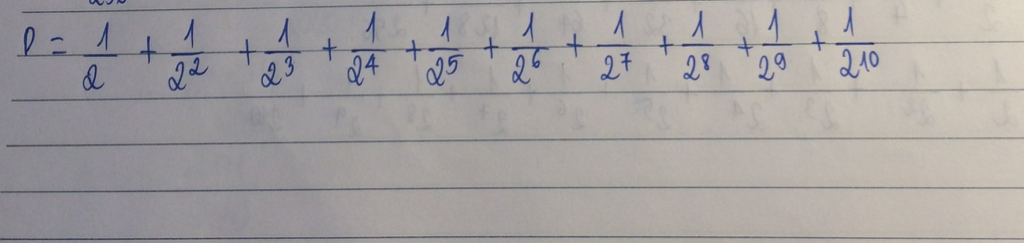 D = 1/2 + 1/2² + 1/2³ + 1/2⁴ + 1/2⁵ + 1/2⁶ + 1/2⁷ + 1/2⁸ + 1/2⁹ + 1/2¹⁰